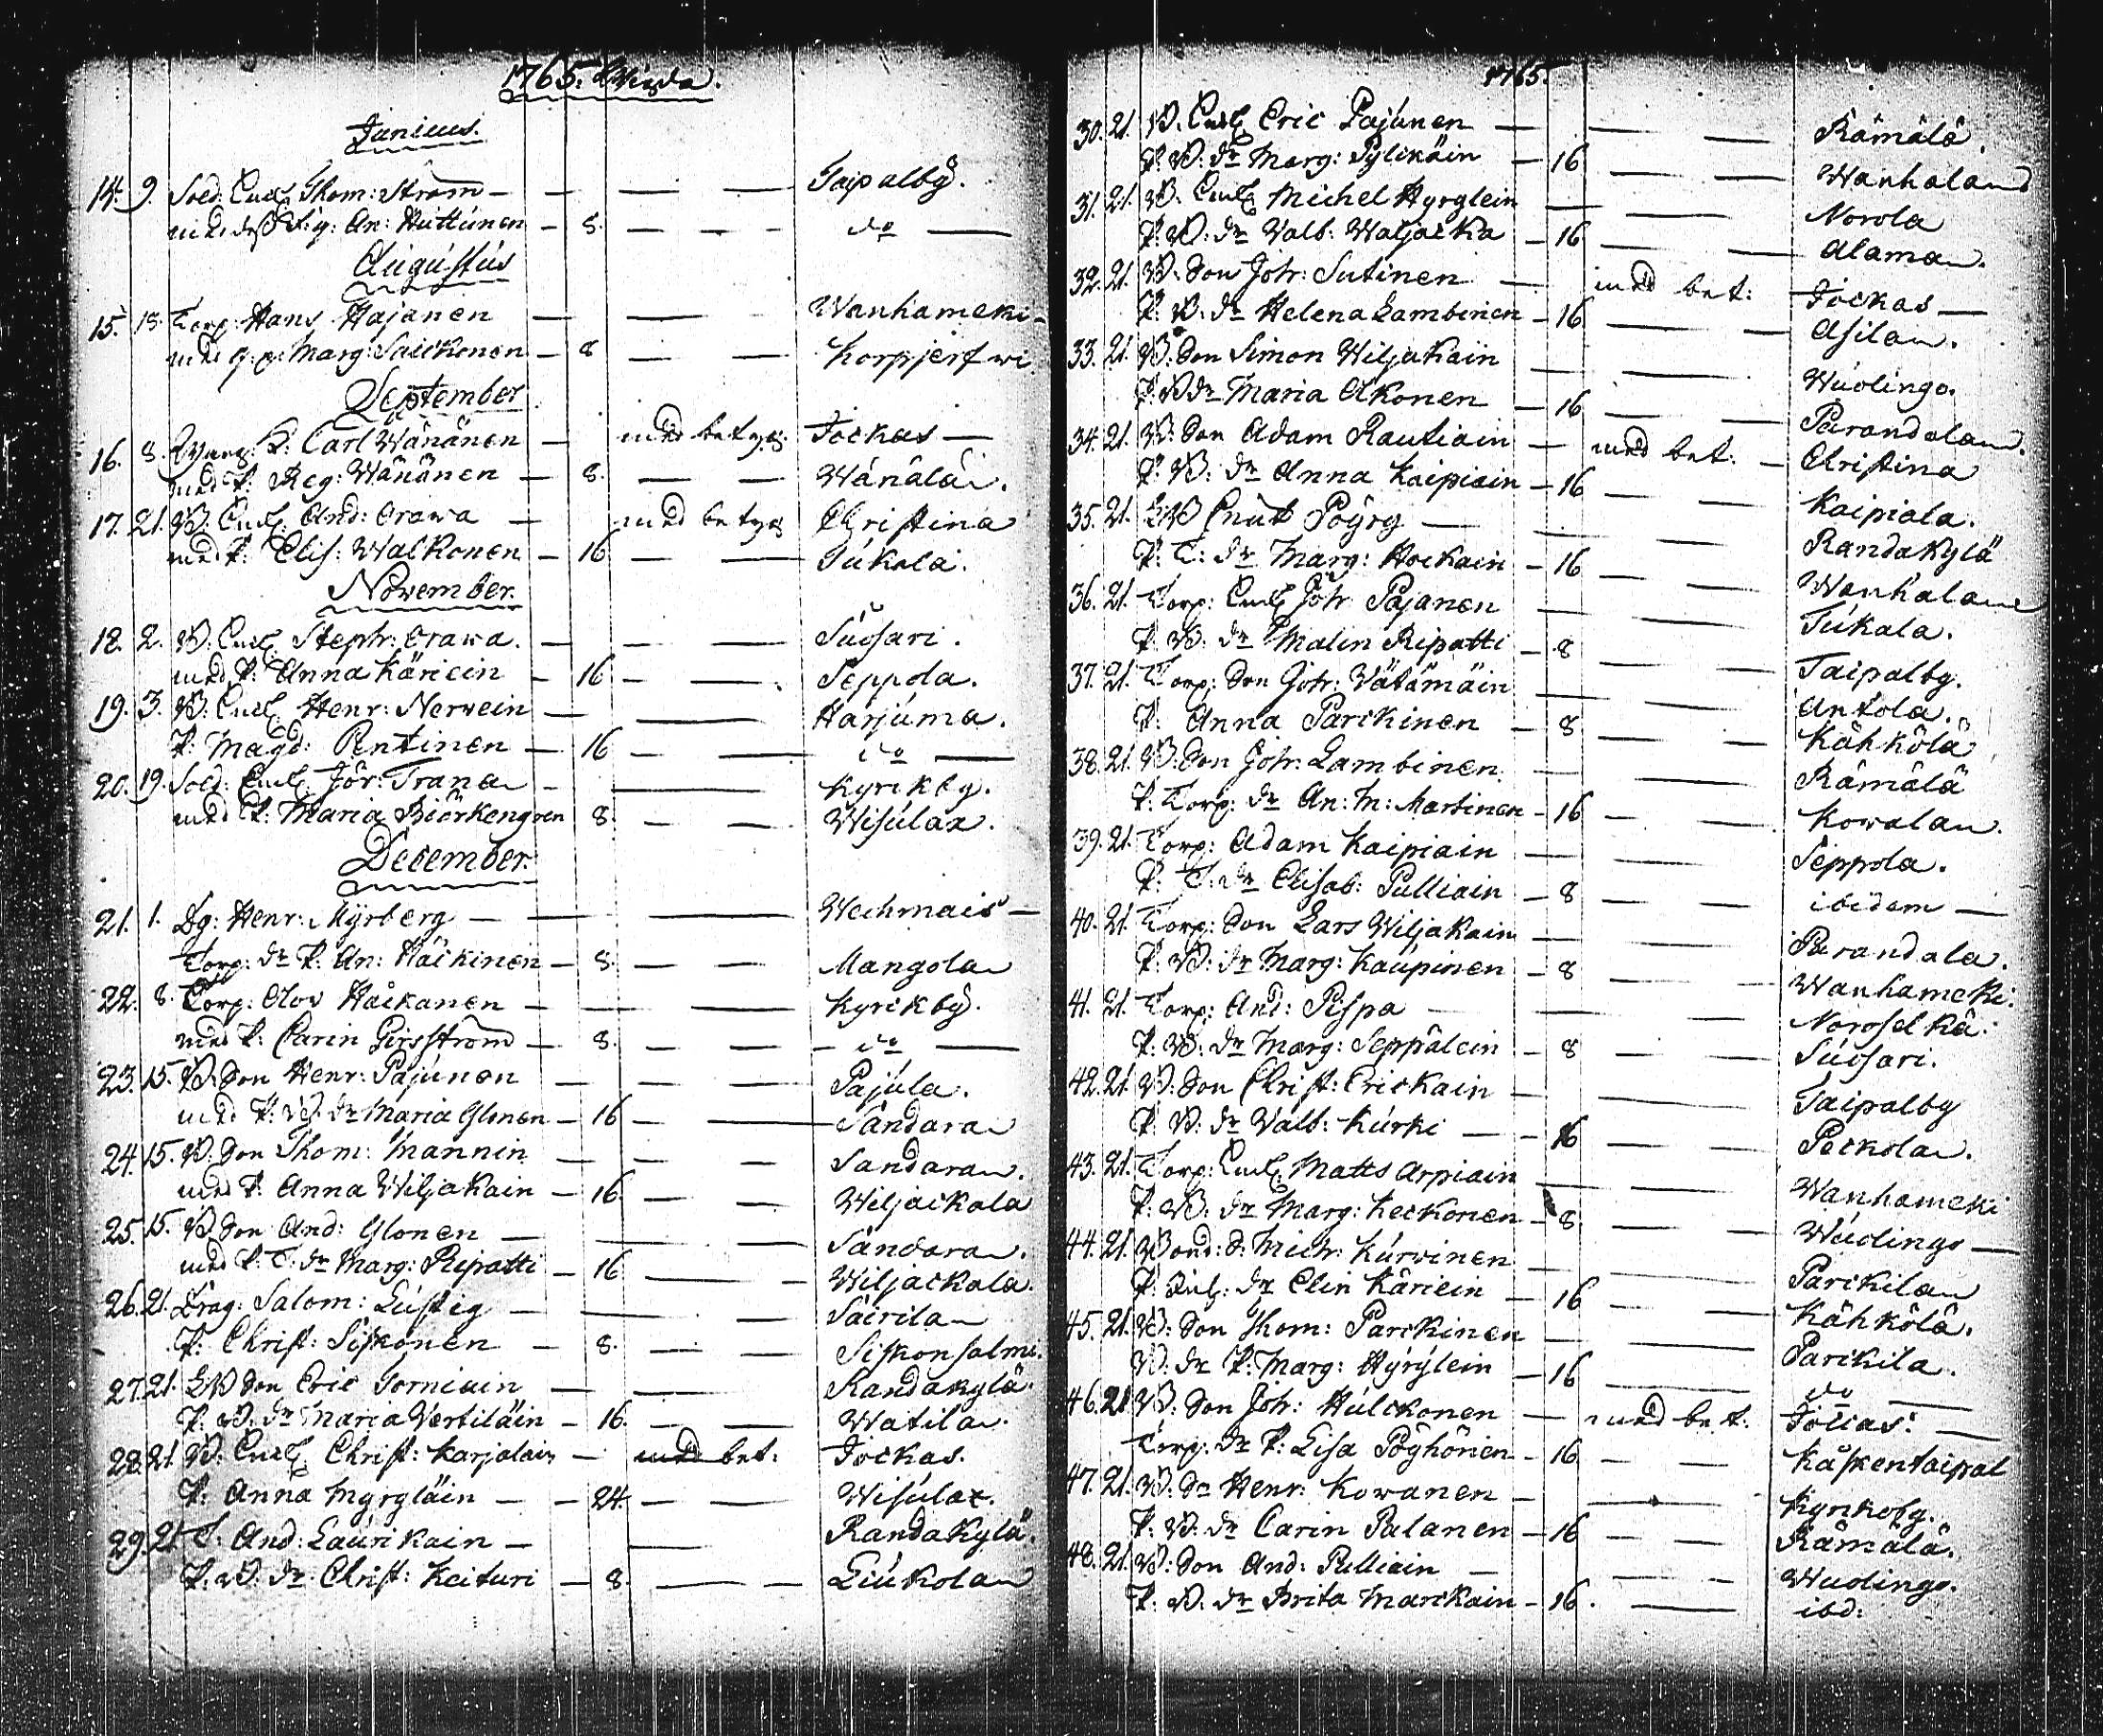 1765. Wigda.
Junius.
14. 9. Sold: Enkl: Thom: Ström — Taipalby.
med dess D: q: An: Huttunen — 8. — do —
Augustus
15. 18. Torp: Hans Hajanen — Wanhameki
med q. p: Marg: Saickonen — 8 — Korpjerfwi
September
16. 8. Carl Wänänen — med betyg: Jockas —
med P. Reg: Wänänen — 8. — Wänälä.
17. 21. B: Enkl: And: Orawa — med betyg Christina
med P. Elis: Walkonen — 16 — Tukala.
November.
18. 2. B: Enkl: Steph: Orawa. — Suosari.
med P: Anna Käriein — 16 — Seppola.
19. 3. B: Enkl: Henr: Nerwein — Harjuma.
P: Magd: Pentinen — 16 — do —
20. 19. Sold: Enkl: Jör: Trana — Kyrkby.
med P: Maria Biörkengren 8. — Wisulax.
December.
21. 1. Dg: Henr: Myrberg — Wechmais —
Torp: dr P: An: Häckinen — 8. — Mangola
22. 8. Torp: Olov Håckanen — Kyrckby.
med P: Carin Girsström — 8. — do —
23. 15. B: Son Henr: Pajunen — Pajula.
med P: B: dr Maria Ylönen — 16 — Sandara
24. 15. B: Son Thom: Mannin — Sandara.
med P: Anna Wiljakain — 16. — Wiljackala
25. 15. B Son And: Ylonen — Sandara.
med P: T: dr Marg: Ripatti — 16 — Wiljackala.
26. 21. Drag: Salom: Lustig — Sairila
P: Christ: Siskonen — 8. — Siskonsalmi.
27. 21. LB Son Eric Torniain — Randakylä.
P: B: dr Maria Vertiläin — 16. — Watila.
28. 21. B: Enkl: Christ: Karjalain — med bet: Jockas.
P: Anna Myrgläin — 24 — Wisulax.
29. 21. T: And: Laurikain — Randakylä.
P: B: dr: Christ: Keituri — 8. — Liukola
1765.
30. 21. B: Enkl: Eric Pajunen — Rämälä.
P: B: dr Marg: Pylikäin — 16 — Wanhala
31. 21. B: Enkl: Michel Hyrglein — Norola
P: B: dr Valb: Waljacka — 16 — Alaman.
32. 21. B: Son Joh: Sutinen — med bet: Jockas —
P: B: dr Helena Lambinen — 16 — Asila.
33. 21. B: Son Simon Wiljakain — Wuolingo.
P: B dr Maria Akonen — 16 — Parandala.
34. 21. B: Son Adam Rautiain — med bet: — Christina
P: B: dr Anna Kaipiain — 16 — Kaipiala.
35. 21. LB Cnut Pöyry — Randakylä
P: T: dr Marg: Hockain — 16 — Wanhala
36. 21. Torp: Enkl: Joh: Pajanen — Tukala.
P: B: dr Malin Ripatti — 8 — Taipalby.
37. 21. Torp: Son Joh: Vätämäin — Antola.
P: Anna Parckinen — 8 — Kähkölä
38. 21. B: Son Joh: Lambinen — Rämälä
P: Torp: dr An: M: Martinen — 16 — Kowala.
39. 21. Torp: Adam Kaipiain — Seppola.
P: T: dr Elisab: Pulliain — 8 — ibidem —
40. 21. Torp: Son Lars Wiljakain — Parandala.
P: B: dr Marg: Kaupinen — 8 — Wanhameki.
41. 21. Torp: And: Pispa — Noroselkä.
P: B: dr Marg: Seppälein — 8 — Suosari.
42. 21. B: Son Christ: Erickain — Taipalby
P: B: dr Valb: Kurki — 16 — Peckola.
43. 21. Torp: Enkl: Matts Arpiain — Wanhameki
P: B: dr Marg: Keckonen — 8 — Wuolingo —
44. 21. Bond: S: Mich: Kurwinen — Parckila
P: dr Elin Käriein — 16 — Kähkölä.
45. 21. B: Son Thom: Parckinen — Parckila.
B: dr P: Marg: Hyrylein — 16 — do —
46. 21 B: Son Joh: Hulckonen — med bet: Jockas: —
Torp: dr P: Lisa Pöyhönen — 16 — Kaskentaipal
47. 21. B: Sn Henr: Kowanen — Kyrkoby.
P: B: dr Carin Palanen — 16 — Rämälä.
48. 21. B: Son And: Pulliain — Wuolingo.
P: B: dr Brita Marckain — 16. — ibd: